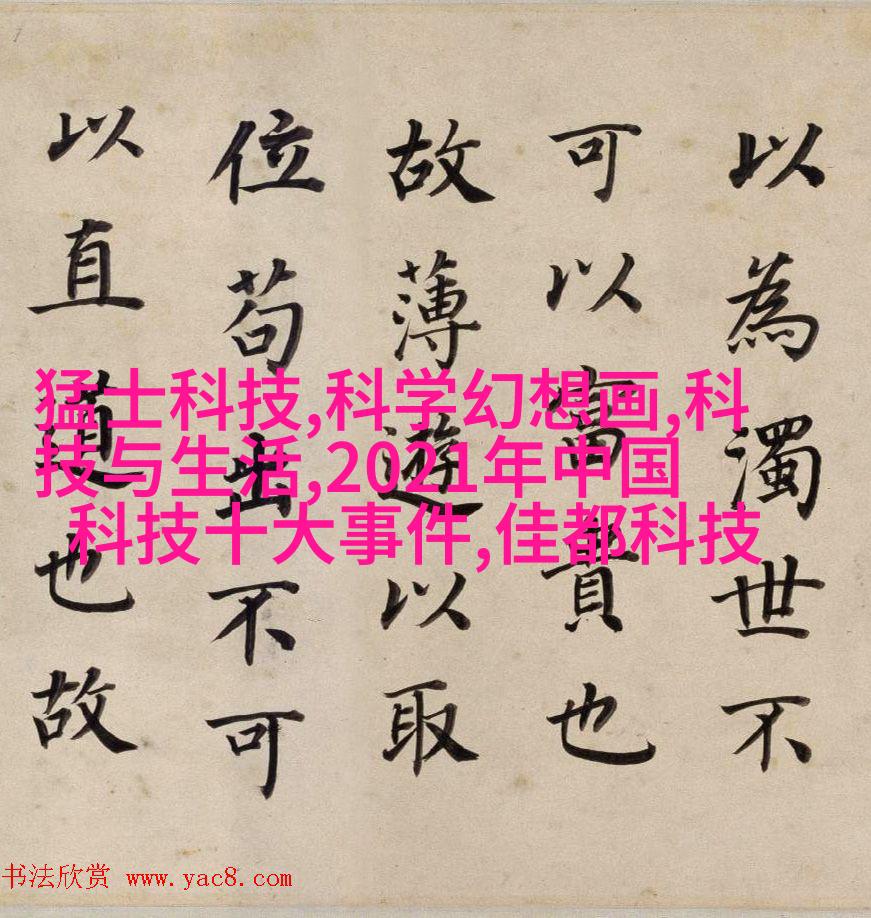 以為濁世不
可以富貴也
故薄遊以取
位苟出不可
以直道也故
猛士科技,科学幻想画,科
技与生活,2021年中国
科技十大事件,佳都科技
书法欣赏 www.yac8.com